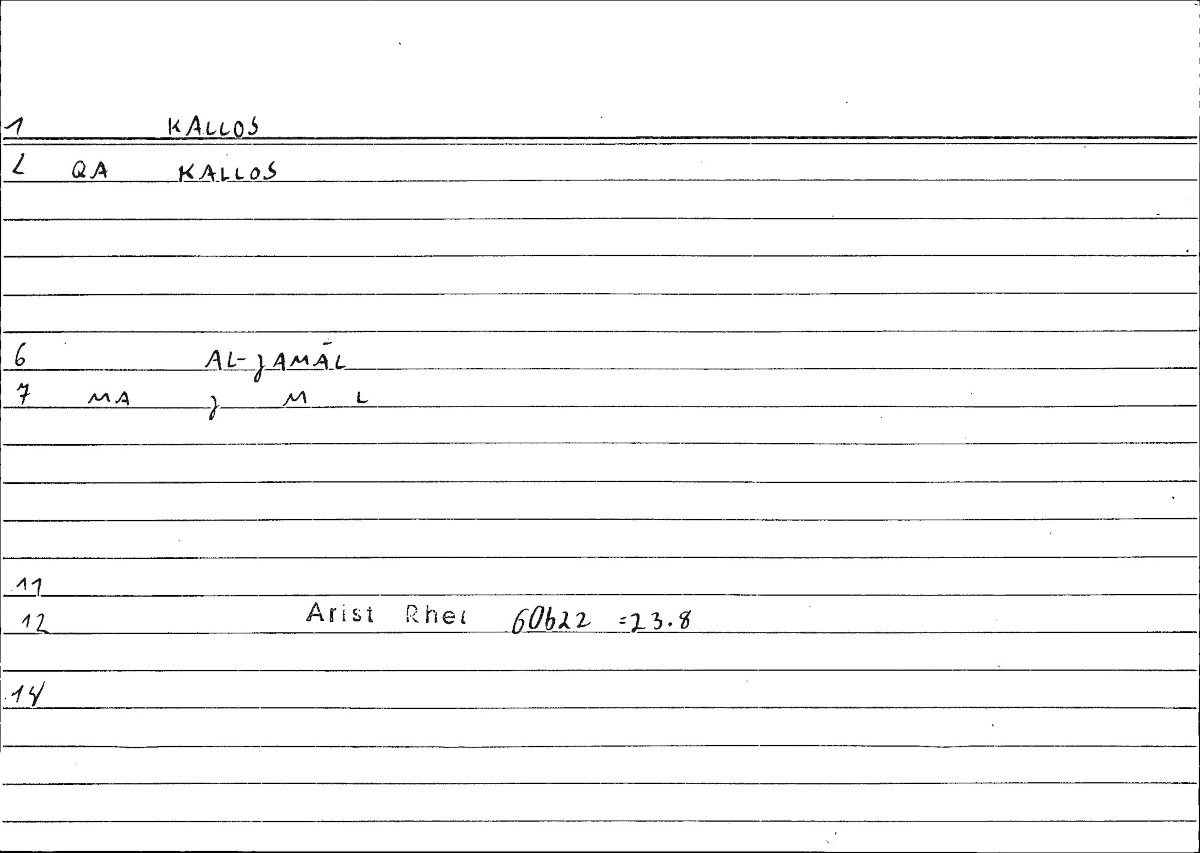 1 KALLOS
2 QA KALLOS
6 AL-JAMĀL
7 MA J M L
11
12 Arist Rhet 60b22 =23.8
14